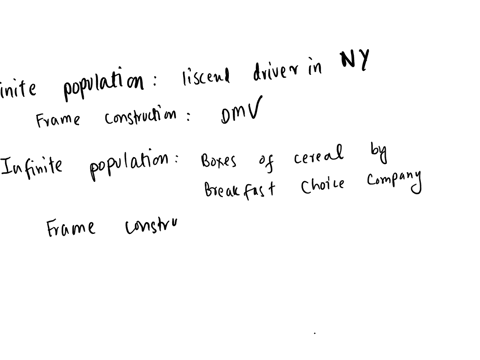 inite population: liscend driver in NY
Frame construction: DMV
Infinite population: Boxes of cereal by
Breakfast Choice Company
Frame constru